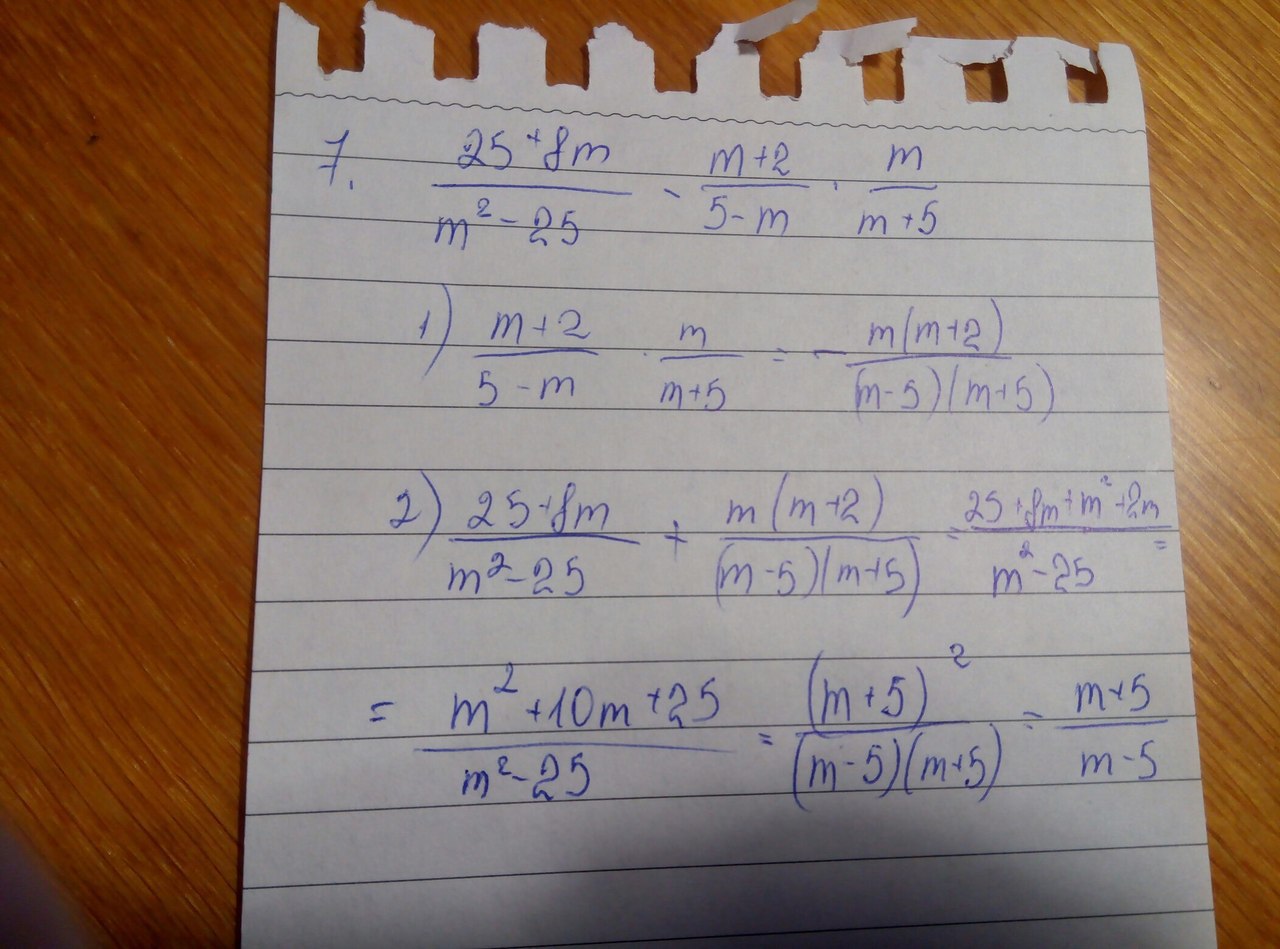 7. \frac{25+8m}{m^2-25} - \frac{m+2}{5-m} \cdot \frac{m}{m+5}
1) \frac{m+2}{5-m} \cdot \frac{m}{m+5} = -\frac{m(m+2)}{(m-5)(m+5)}
2) \frac{25+8m}{m^2-25} + \frac{m(m+2)}{(m-5)(m+5)} = \frac{25+8m+m^2+2m}{m^2-25} =
= \frac{m^2+10m+25}{m^2-25} = \frac{(m+5)^2}{(m-5)(m+5)} = \frac{m+5}{m-5}